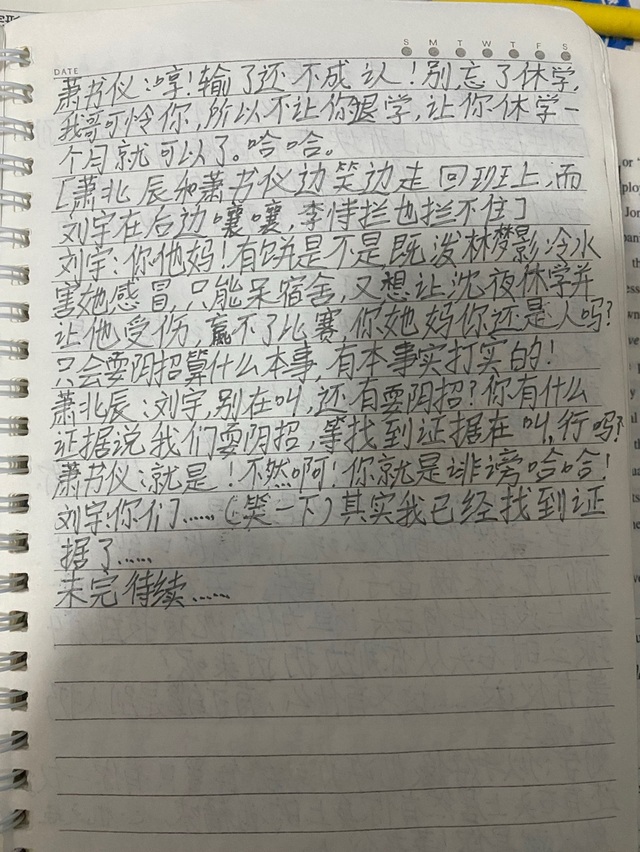 DATE
S M T W T F S
萧书仪:哼!输了还不成认!别忘了休学,
我哥可怜你,所以不让你退学,让你休学一
个月就可以了。哈哈。
[萧北辰和萧书仪边笑边走回班上,而
刘宇在后边嚷嚷,李恃拦也拦不住]
刘宇:你他妈!有饼是不是既泼林梦影冷水
害她感冒,只能呆宿舍,又想让沈夜休学并
让他受伤,赢不了比赛,你她妈你还是人吗?
只会耍阴招算什么本事,有本事实打实的!
萧北辰:刘宇,别在叫,还有耍阴招?你有什么
证据说我们耍阴招,等找到证据在叫,行吗?
萧书仪:就是!不然啊!你就是诽谤哈哈!
刘宇:你们……(笑一下)其实我已经找到证
据了……
未完待续……